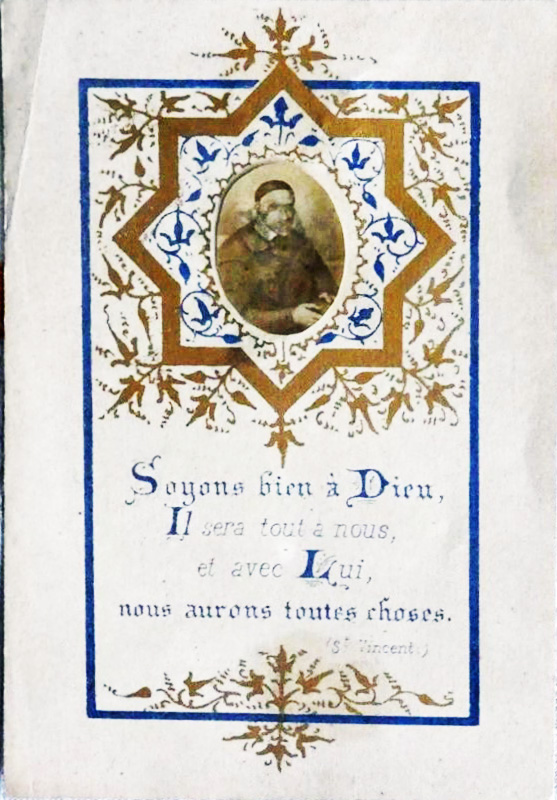 Soyons bien à Dieu,
Il sera tout à nous,
et avec Lui,
nous aurons toutes choses.
(St Vincent.)